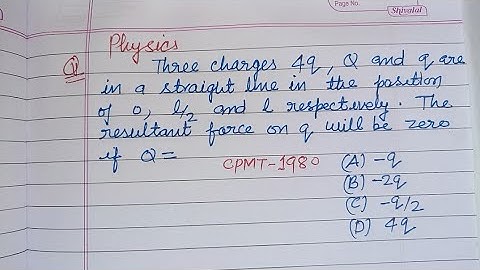 Page No.
Shivalal
Physics
Q Three charges 4q, Q and q are
in a straight line in the position
of 0, l/2 and l respectively. The
resultant force on q will be zero
if Q =
CPMT-1980 (A) -q
(B) -2q
(C) -q/2
(D) 4q